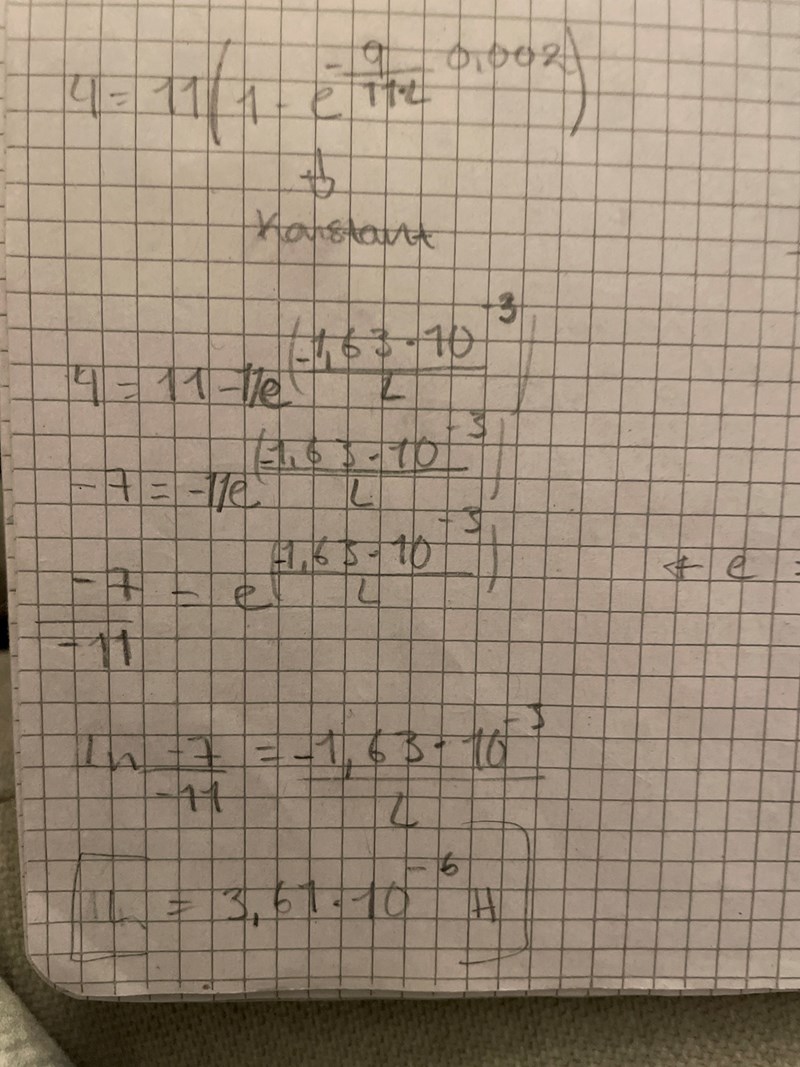 4 = 11(1 - e^(-9/(11·L) 0,002))
Konstant
4 = 11 - 11e^(-1,63·10^-3/L)
-7 = -11e^(-1,63·10^-3/L)
-7/-11 = e^(-1,63·10^-3/L)
← e =
ln -7/-11 = -1,63·10^-3/L
= 3,61·10^-6 H